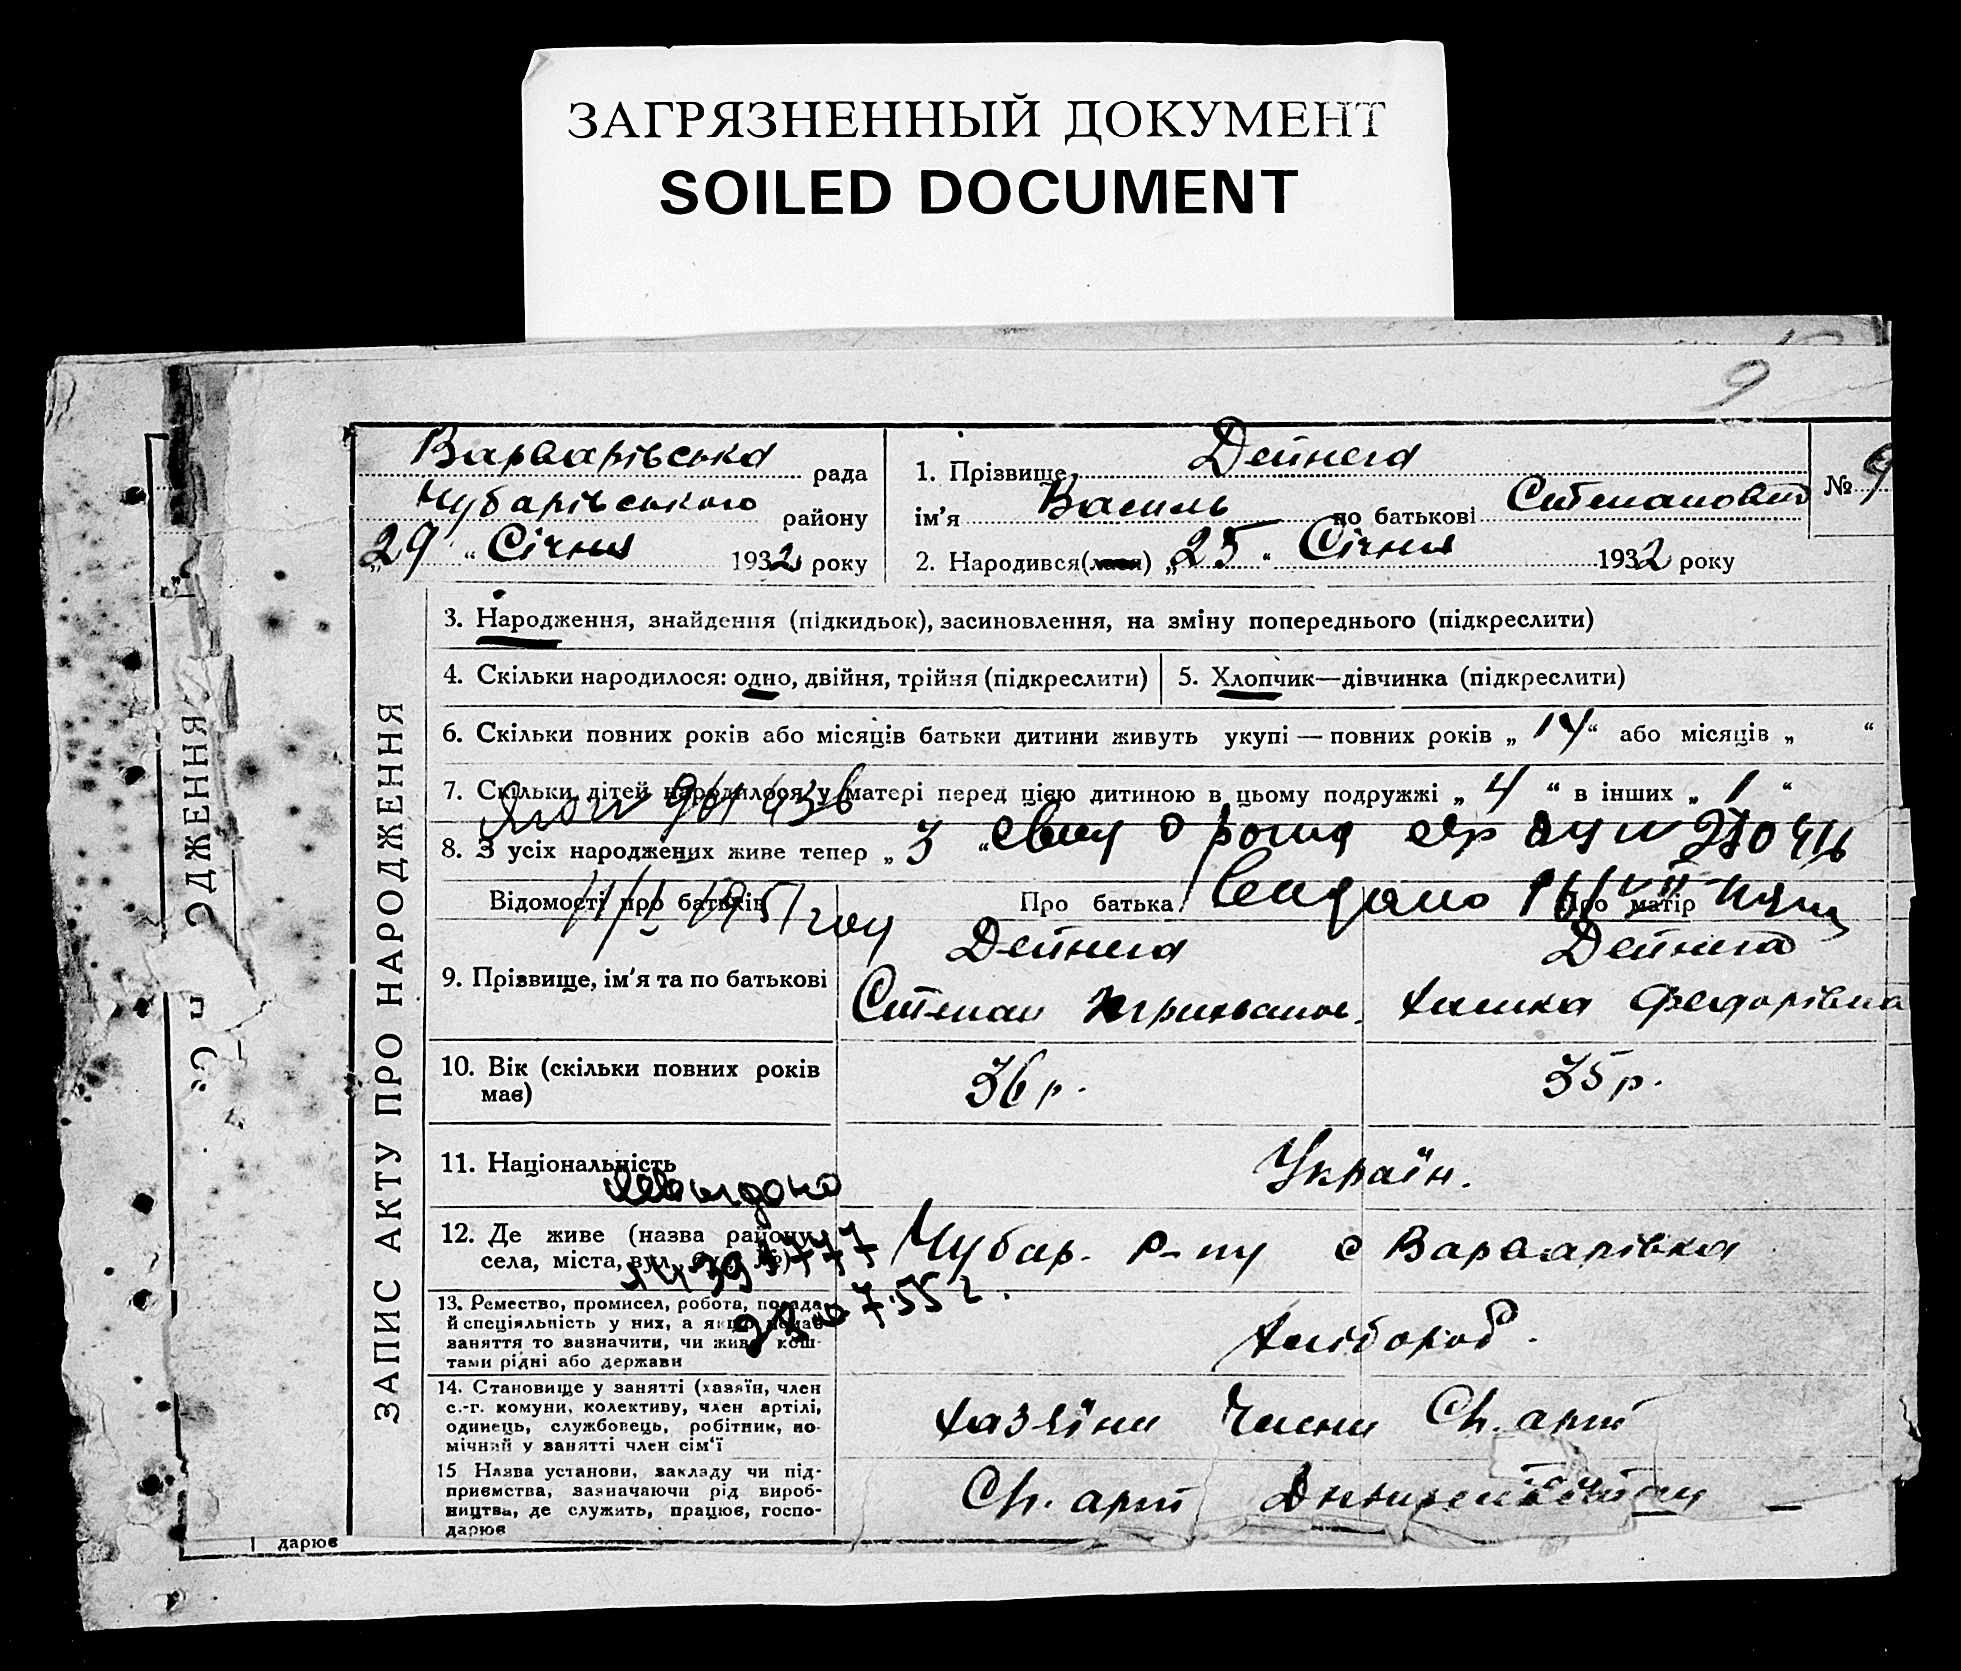 ЗАГРЯЗНЕННЫЙ ДОКУМЕНТ
SOILED DOCUMENT
9
Варварівська рада
Чубарівського району
„29 “ Січня 1932 року
1. Прізвище Дейнега
ім'я Василь по батькові Степанович
№ 9
2. Народився(лася) „25“ Січня 1932 року
ЗАПИС АКТУ ПРО НАРОДЖЕННЯ
3. Народження, знайдення (підкидьок), засиновлення, на зміну попереднього (підкреслити)
4. Скільки народилося: одно, двійня, трійня (підкреслити)
5. Хлопчик—дівчинка (підкреслити)
6. Скільки повних років або місяців батьки дитини живуть укупі — повних років „ 14 “ або місяців „ “
7. Скільки дітей народилося у матері перед цією дитиною в цьому подружжі „ 4 “ в інших „ 1 “
8. З усіх народжених живе тепер „ 3 “
Відомості про батьків
Про батька
Про матір
9. Прізвище, ім'я та по батькові
Дейнега
Степан
Дейнега
Федорівна
10. Вік (скільки повних років має)
36 р.
35 р.
11. Національність
Україн.
12. Де живе (назва району,
села, міста, вул.
Чубар. р-ну с Варварівка
13. Ремество, промисел, робота, посада
й спеціяльність у них, а якщо немає
заняття то зазначити, чи живе кош-
тами рідні або держави
Хлібороб.
14. Становище у занятті (хазяїн, член
с.-г. комуни, колективу, член артілі,
одинець, службовець, робітник, по-
мічний у занятті член сім'ї
хазяїни Члени Сг. арт
15 Назва установи, закладу чи під-
приємства, зазначаючи рід вироб-
ництва, де служить, працює, госпо-
дарює
Сг. арт
дарює